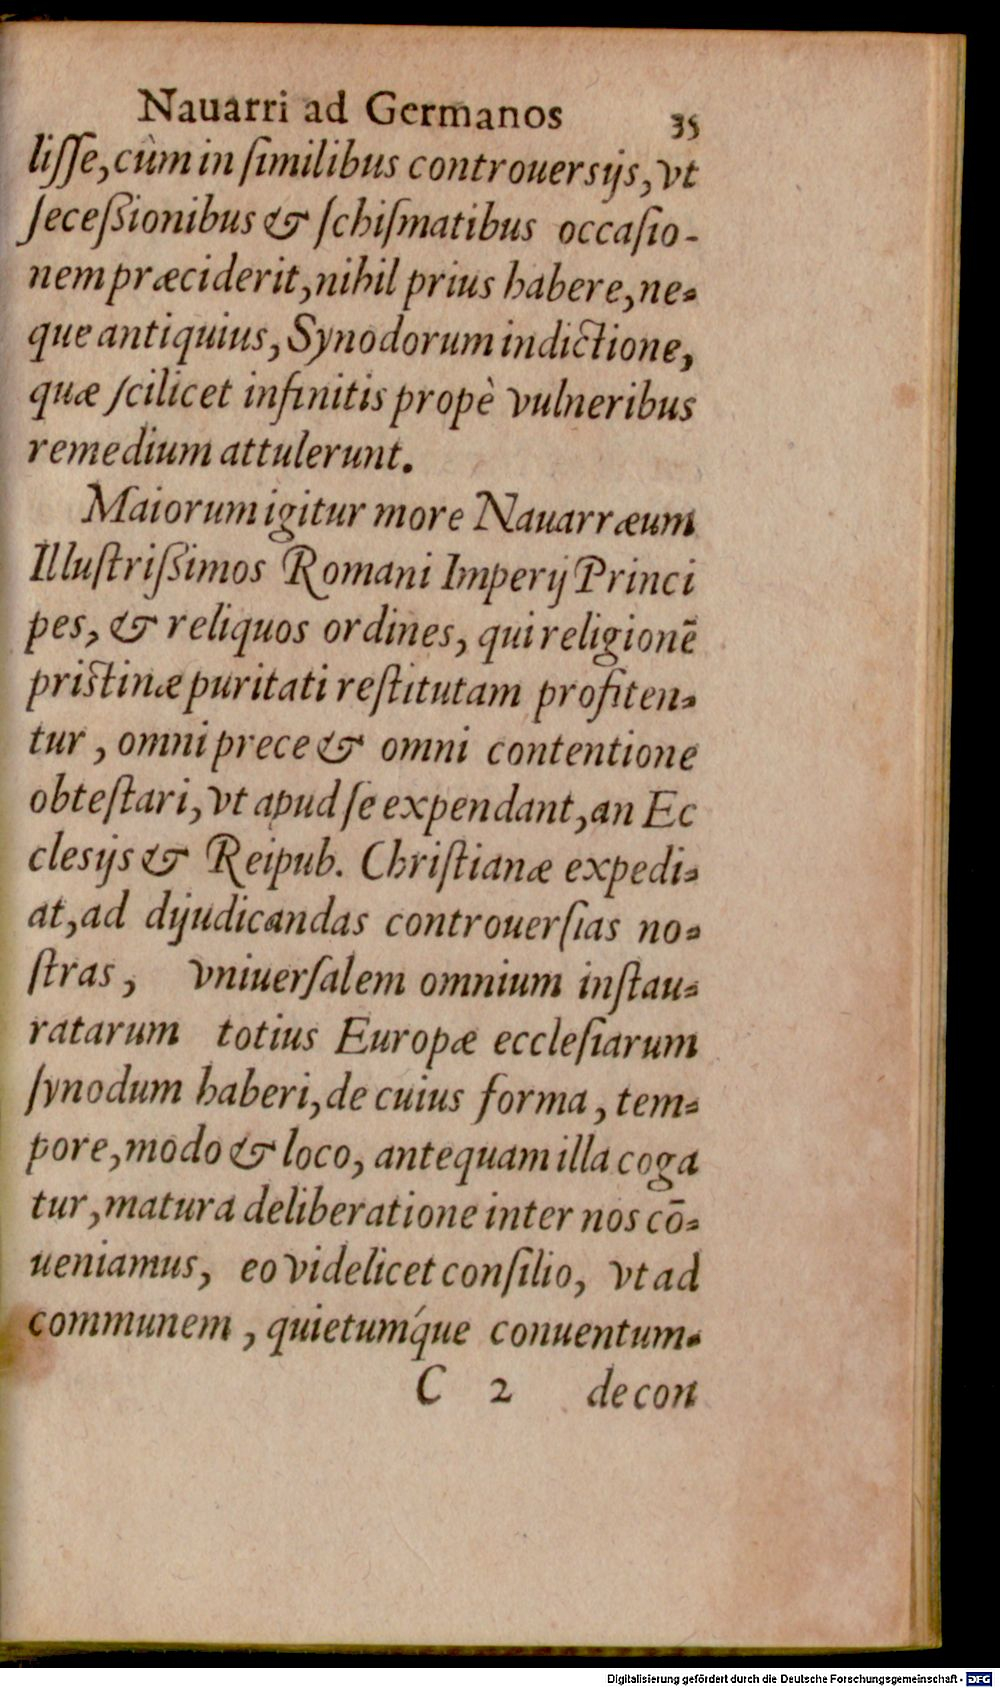 Nauarri ad Germanos 35
liſſe, cùm in ſimilibus controuersijs, vt
ſeceßionibus & ſchiſmatibus occaſio-
nem præciderit, nihil prius habere, ne-
que antiquius, Synodorum indictione,
quæ ſcilicet infinitis propè vulneribus
remedium attulerunt.
Maiorum igitur more Nauarræum
Illuſtrißimos Romani Imperij Princi
pes, & reliquos ordines, qui religionē
pristinæ puritati reſtitutam profiten-
tur, omni prece & omni contentione
obteſtari, vt apud ſe expendant, an Ec
clesijs & Reipub. Chriſtianæ expedi-
at, ad dijudicandas controuerſias no-
ſtras, vniuerſalem omnium inſtau-
ratarum totius Europæ eccleſiarum
ſynodum haberi, de cuius forma, tem-
pore, modo & loco, antequam illa coga
tur, matura deliberatione inter nos cō-
ueniamus, eo videlicet conſilio, vt ad
communem, quietumq́ue conuentum-
C 2 de con
Digitalisierung gefördert durch die Deutsche Forschungsgemeinschaft - DFG